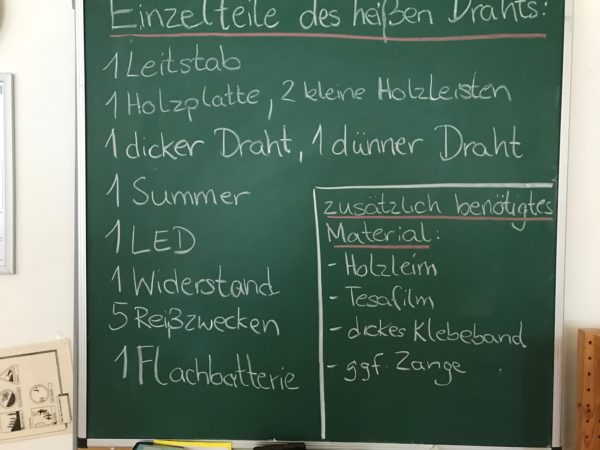 Einzelteile des heißen Drahts:
1 Leitstab
1 Holzplatte, 2 kleine Holzleisten
1 dicker Draht, 1 dünner Draht
1 Summer
1 LED
1 Widerstand
5 Reißzwecken
1 Flachbatterie
zusätzlich benötigtes
Material:
- Holzleim
- Tesafilm
- dickes Klebeband
- ggf. Zange